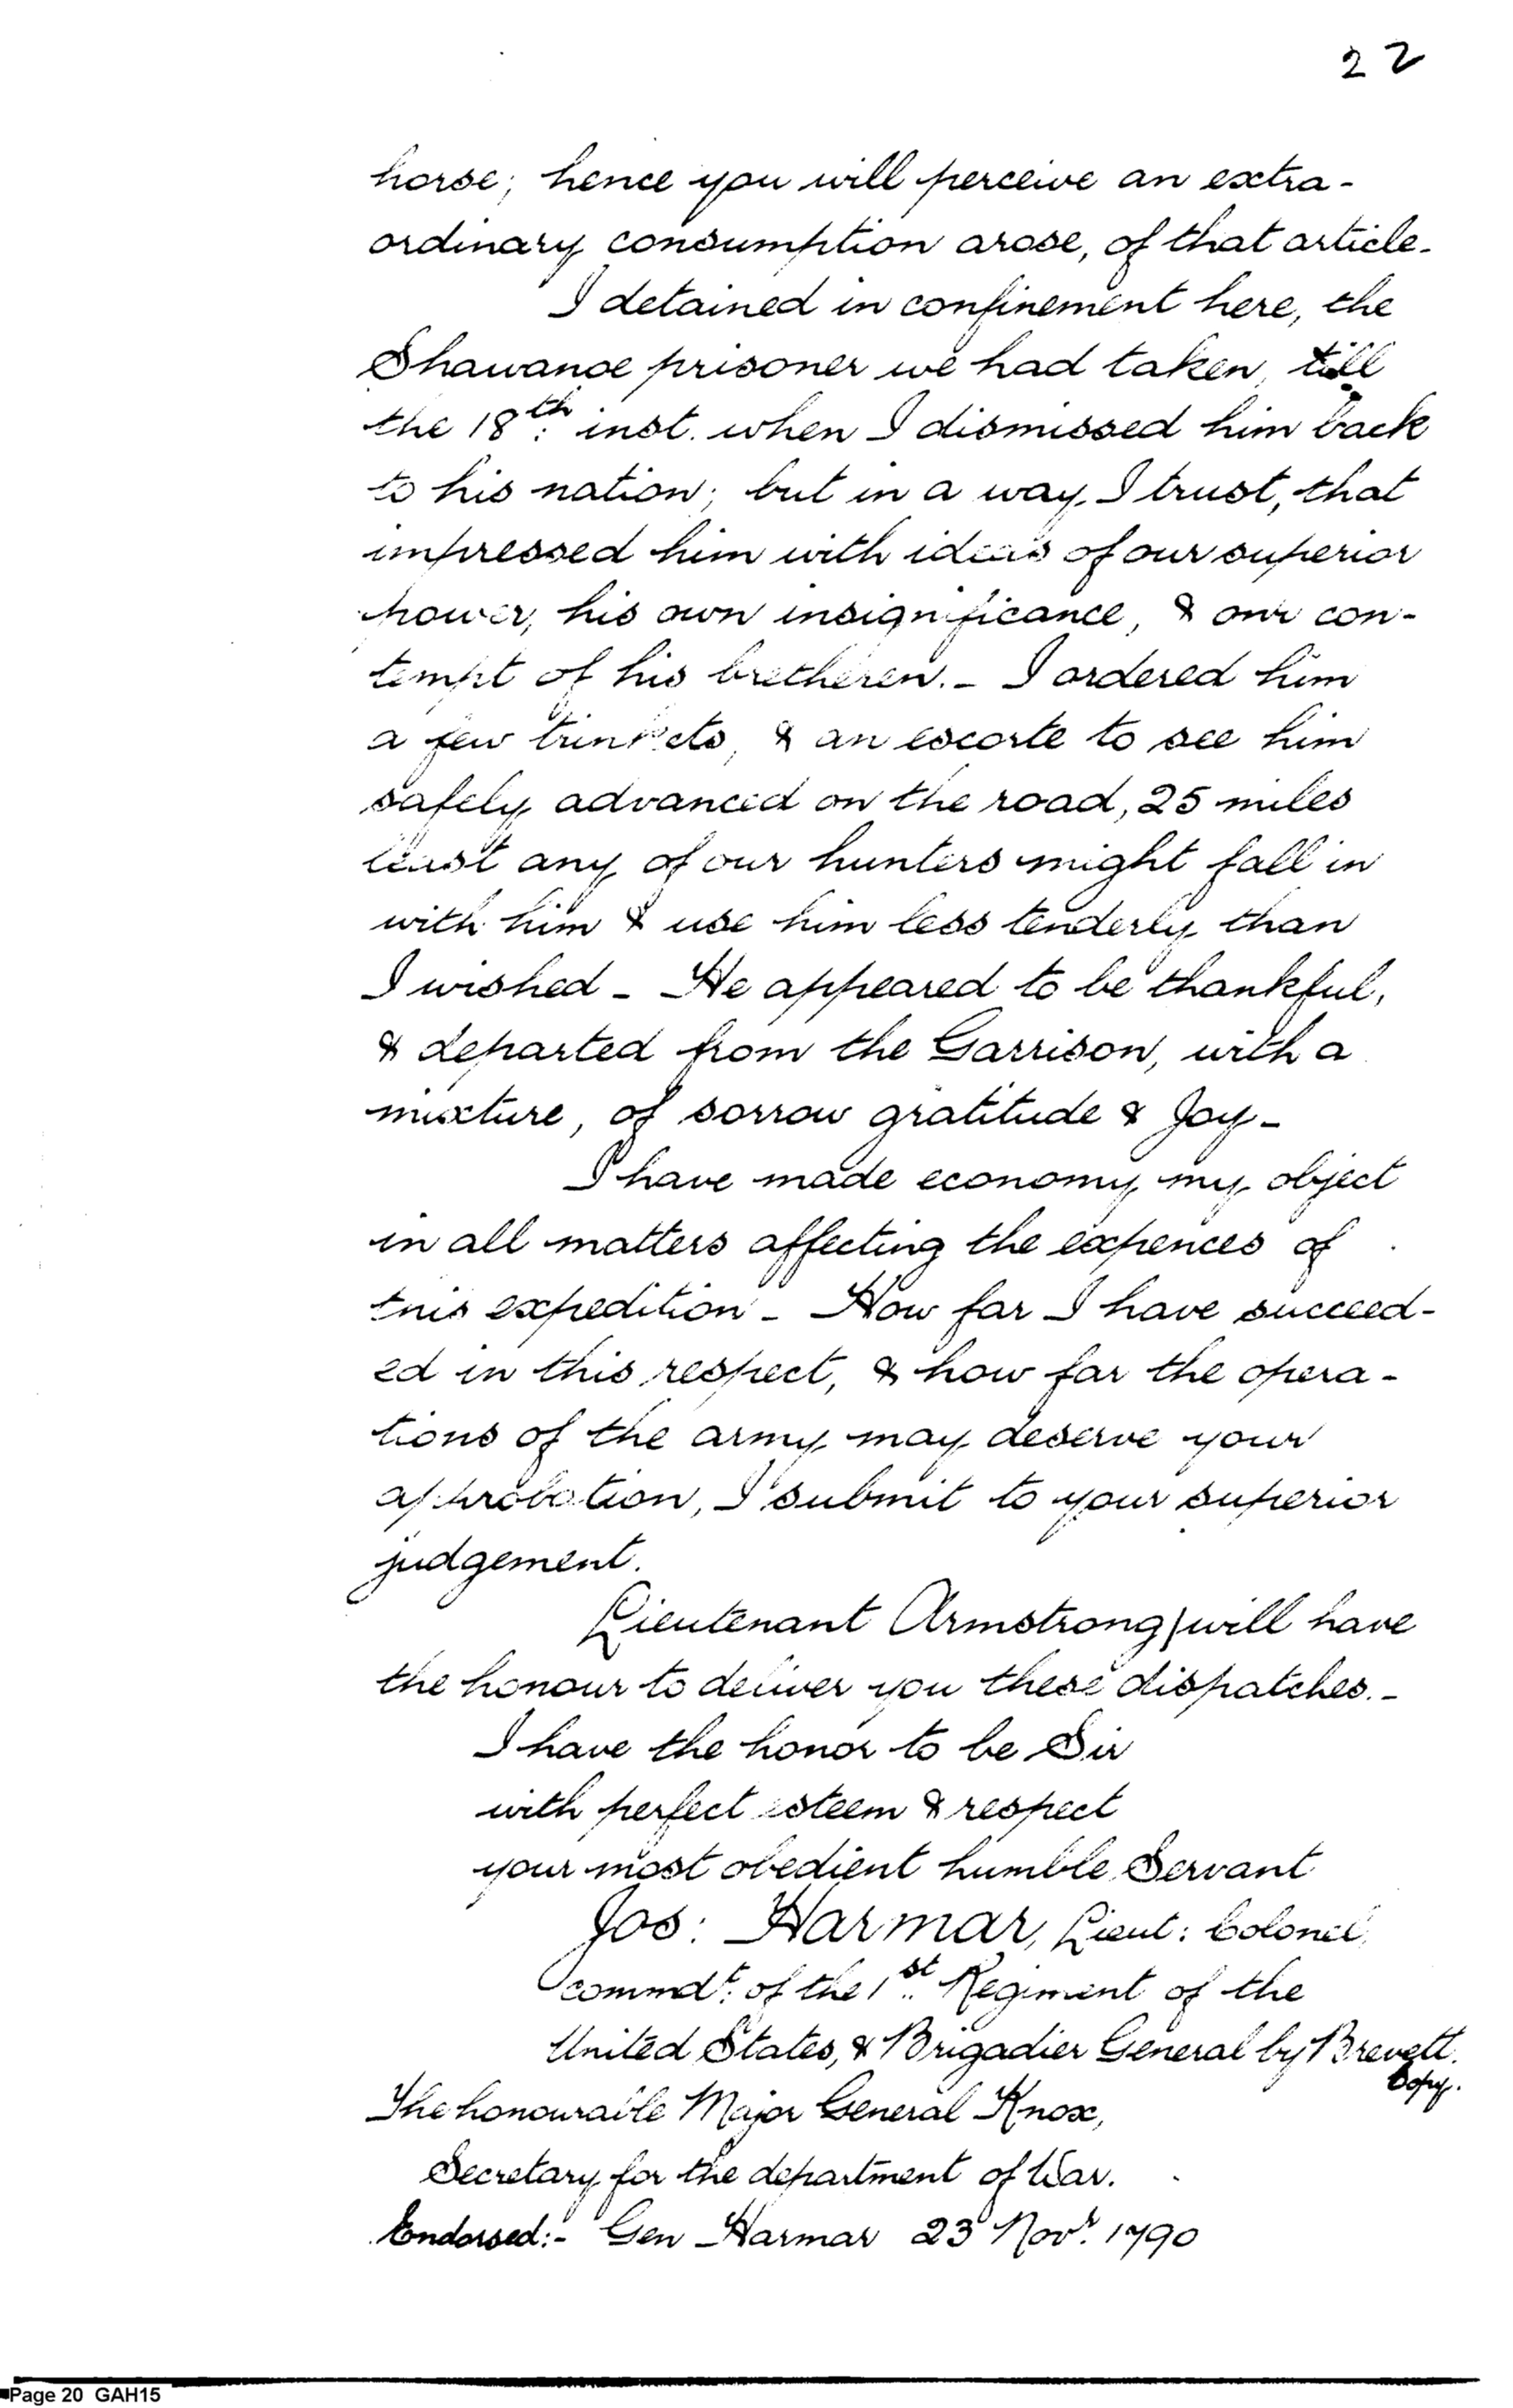 22
horse; hence you will perceive an extra-
ordinary consumption arose, of that article.
I detained in confinement here, the
Shawanoe prisoner we had taken, till
the 18th: inst. when I dismissed him back
to his nation; but in a way, I trust, that
impressed him with ideas of our superior
power, his own insignificance, & our con-
tempt of his bretheren. - I ordered him
a few trinkets, & an escorte to see him
safely advanced on the road, 25 miles
least any of our hunters might fall in
with him & use him less tenderly than
I wished - He appeared to be thankful,
& departed from the Garrison, with a
mixture, of sorrow gratitude & Joy -
I have made economy my object
in all matters affecting the expences of
this expedition - How far I have succeed-
ed in this respect, & how far the opera-
tions of the army may deserve your
approbation, I submit to your superior
judgement.
Lieutenant Armstrong will have
the honour to deliver you these dispatches. -
I have the honor to be Sir
with perfect esteem & respect
your most obedient humble Servant
Jos: Harmar, Lieut: Colonel,
commdt: of the 1st: Regiment of the
United States, & Brigadier General by Brevett.
Copy.
The honouraible Major General Knox,
Secretary for the department of War.
Endorsed:- Gen Harmar 23 Novr. 1790
Page 20 GAH15